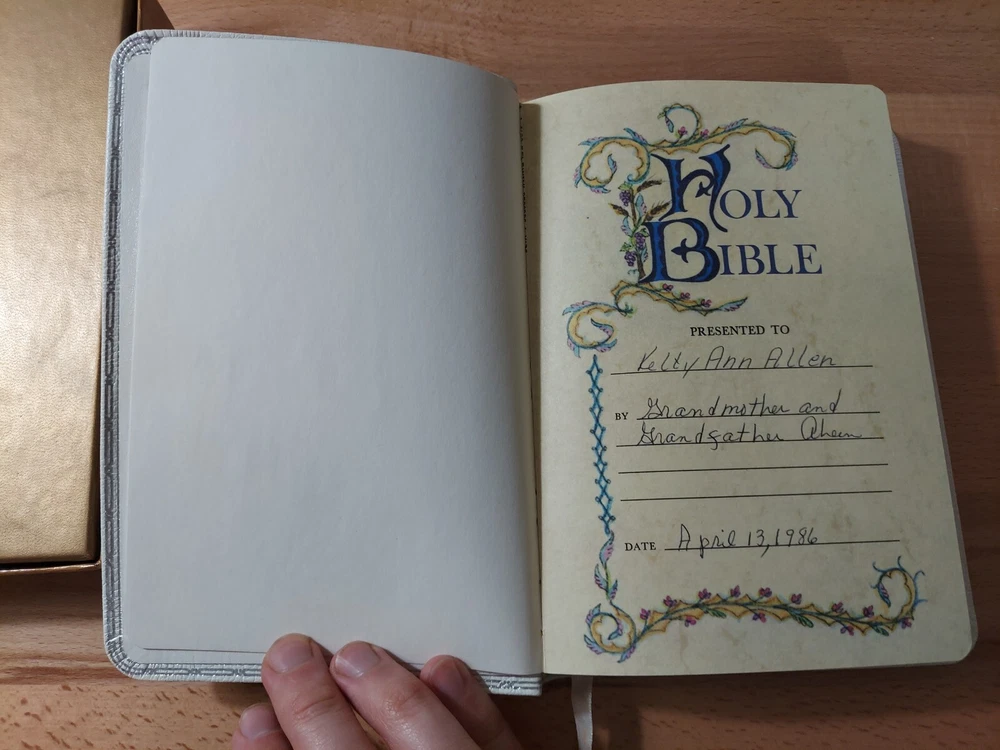 HOLY
BIBLE
PRESENTED TO
Kelly Ann Allen
BY Grandmother and
Grandfather
DATE April 13, 1986